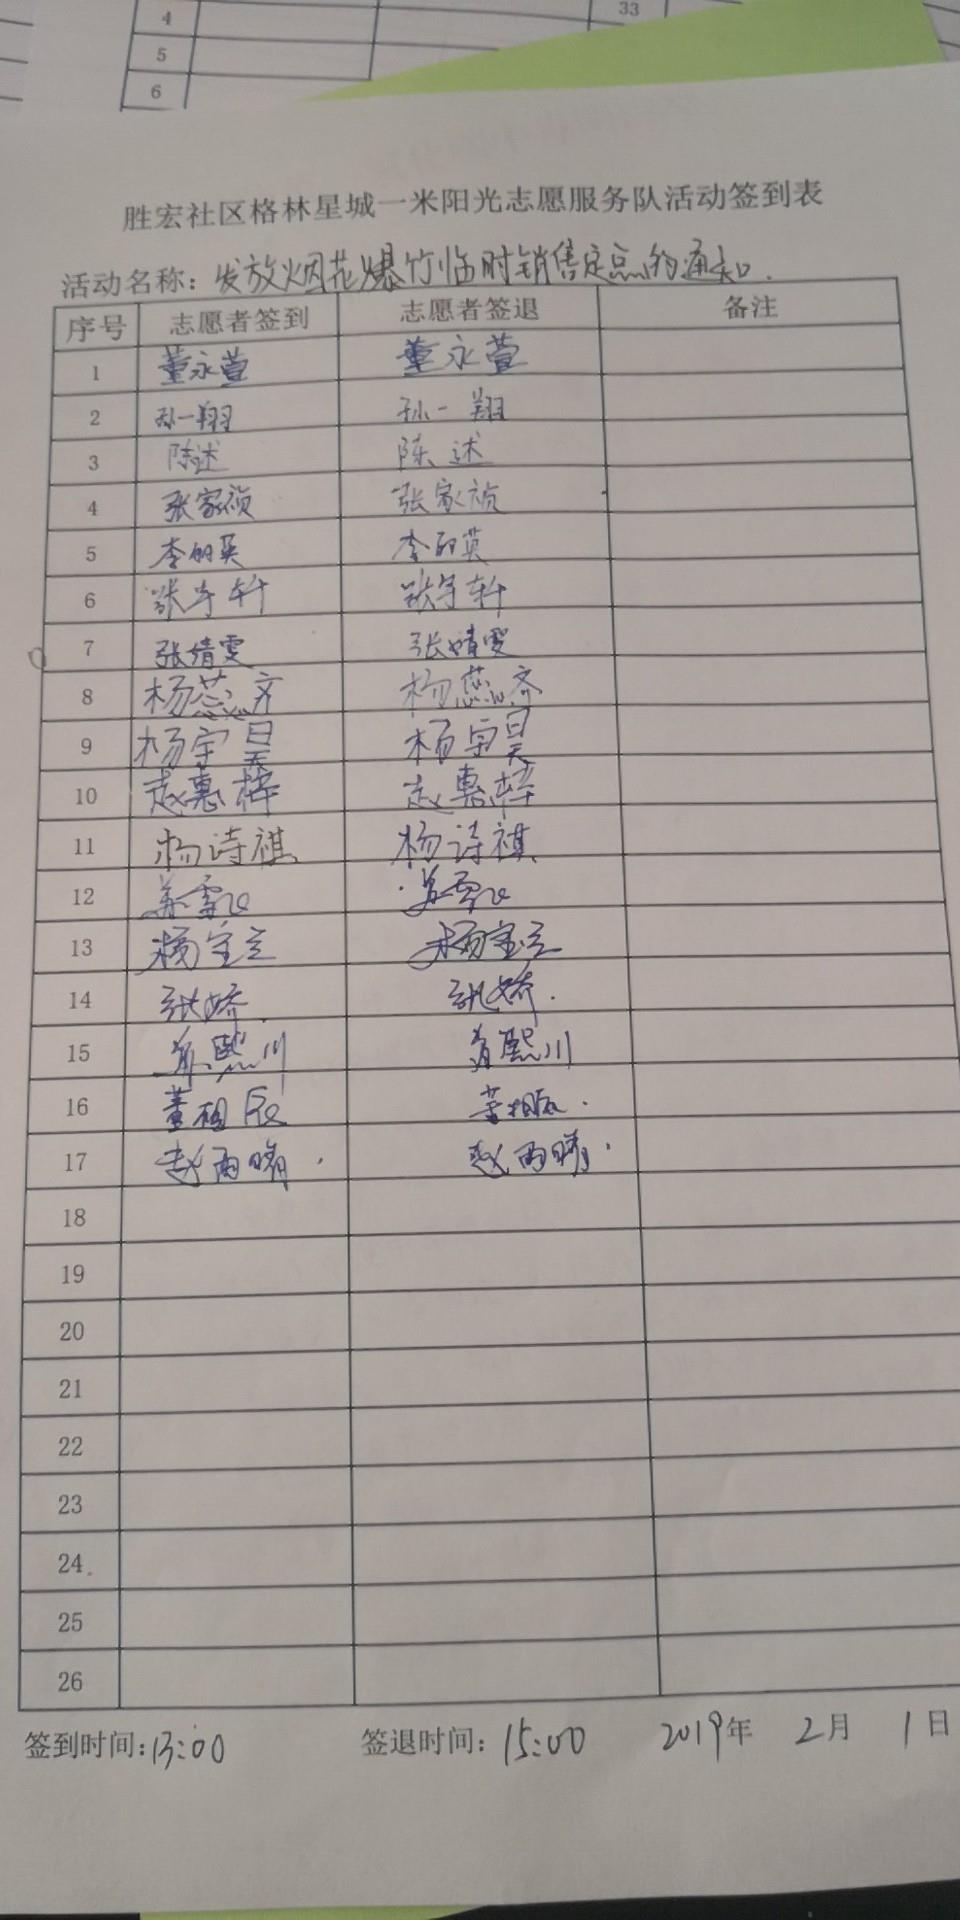 4 33
5
6
胜宏社区格林星城一米阳光志愿服务队活动签到表
活动名称：发放烟花爆竹临时销售定点的通知.
序号 志愿者签到 志愿者签退 备注
1 董永萱 董永萱
2 孙一翔 孙一翔
3 陈述 陈述
4 张家祯 张家祯
5 李明英 李明英
6 张宇轩 张宇轩
7 张婧雯 张婧雯
8 杨蕊齐 杨蕊齐
9 杨宇昊 杨宇昊
10 赵惠梓 赵惠梓
11 杨诗祺 杨诗祺
12
13 杨宝立 杨宝立
14 张娇. 张娇.
15 熙川 熙川
16 董相辰 董相辰.
17 赵雨晴. 赵雨晴.
18
19
20
21
22
23
24
25
26
签到时间：13:00 签退时间：15:00 2019年 2月 1日